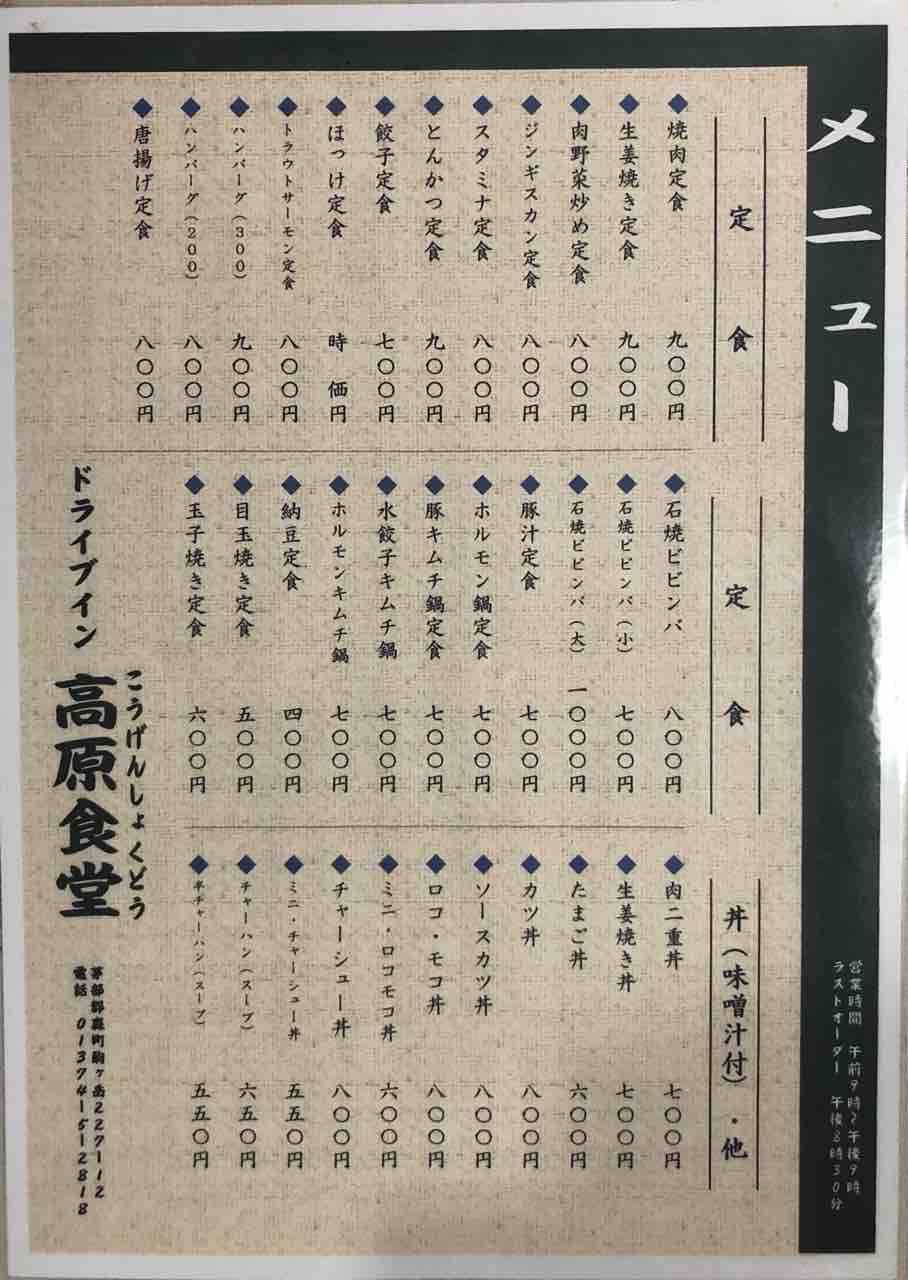 メニュー
営業時間 午前9時~午後9時
ラストオーダー 午後8時30分
定食
焼肉定食 九〇〇円
生姜焼き定食 九〇〇円
肉野菜炒め定食 八〇〇円
ジンギスカン定食 八〇〇円
スタミナ定食 八〇〇円
とんかつ定食 九〇〇円
餃子定食 七〇〇円
ほっけ定食 時価円
トラウトサーモン定食 八〇〇円
ハンバーグ(300) 九〇〇円
ハンバーグ(200) 八〇〇円
唐揚げ定食 八〇〇円
定食
石焼ビビンバ 八〇〇円
石焼ビビンバ(小) 七〇〇円
石焼ビビンバ(大) 一〇〇〇円
豚汁定食 七〇〇円
ホルモン鍋定食 七〇〇円
豚キムチ鍋定食 七〇〇円
水餃子キムチ鍋 七〇〇円
ホルモンキムチ鍋 七〇〇円
納豆定食 四〇〇円
目玉焼き定食 五〇〇円
玉子焼き定食 六〇〇円
丼(味噌汁付)・他
肉二重丼 七〇〇円
生姜焼き丼 七〇〇円
たまご丼 六〇〇円
カツ丼 八〇〇円
ソースカツ丼 八〇〇円
ロコ・モコ丼 八〇〇円
ミニ・ロコモコ丼 六〇〇円
チャーシュー丼 八〇〇円
ミニ・チャーシュー丼 五五〇円
チャーハン(スープ) 六五〇円
半チャーハン(スープ) 五五〇円
ドライブイン
こうげんしょくどう
高原食堂
茅部郡森町駒ヶ岳227-12
電話 01374-5-2818